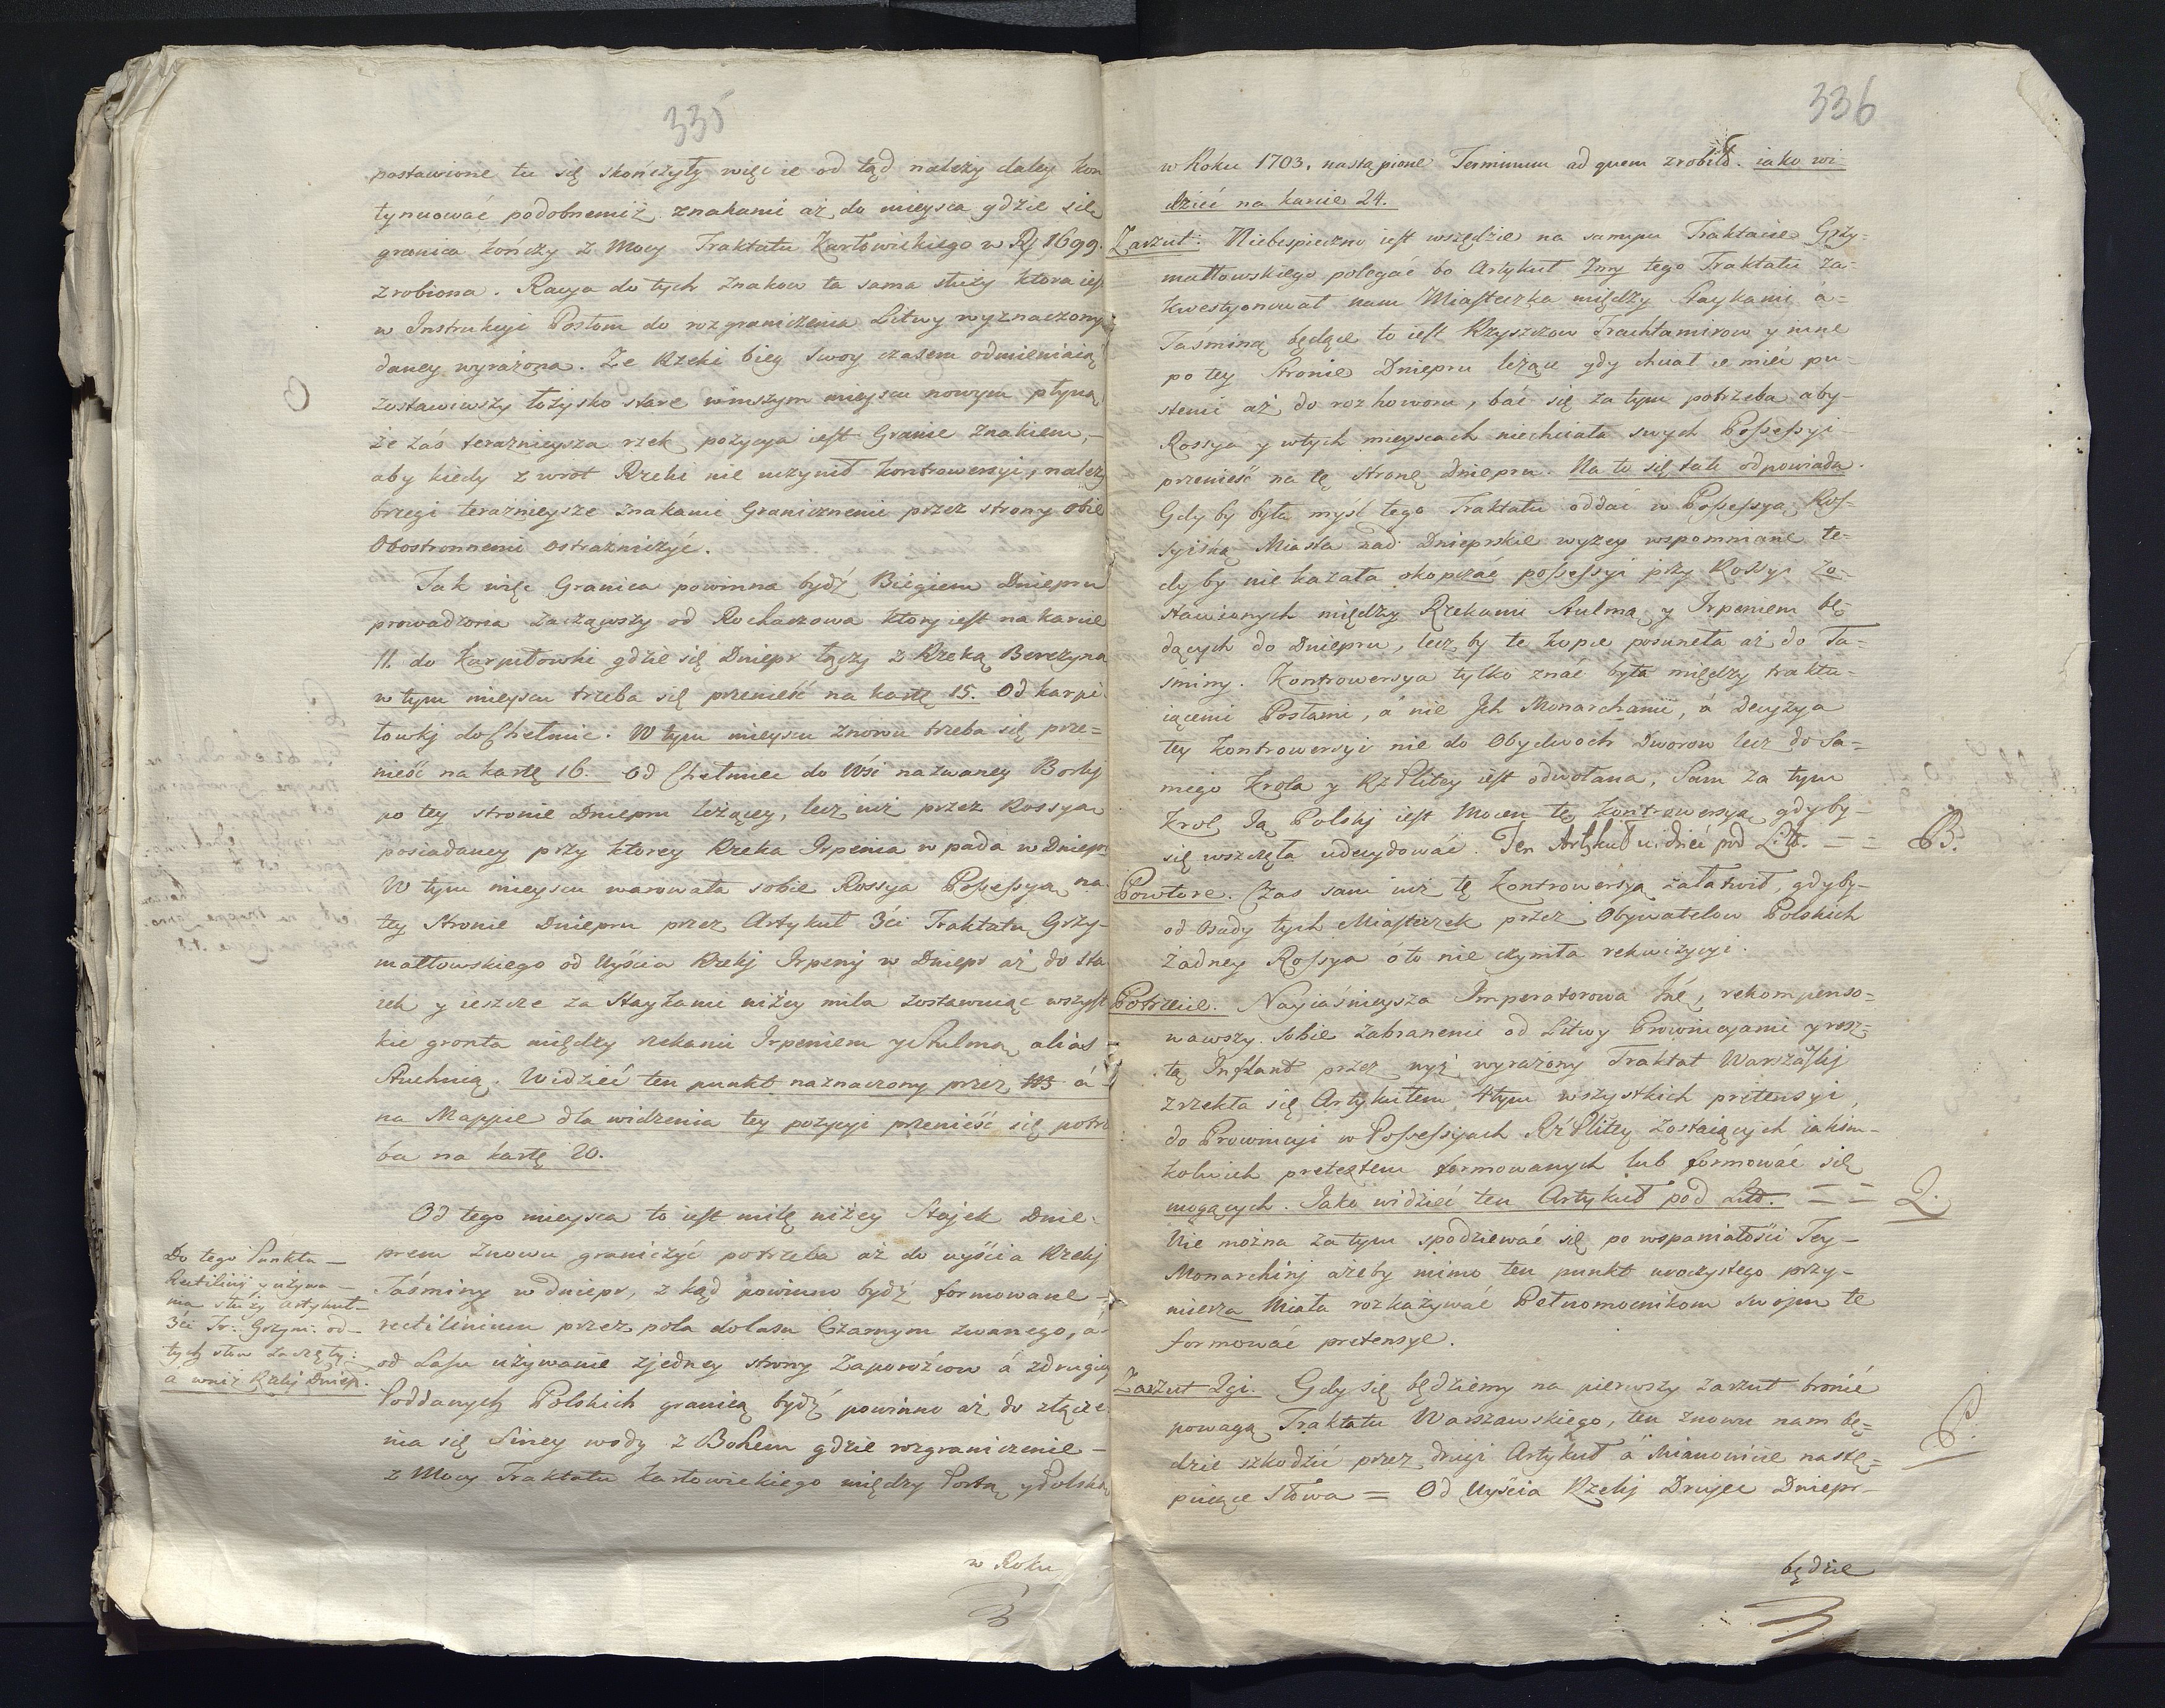 335
postawione tu się skończyły więc ie od tąd należy daley kon
tynuować podobnemiż znakami aż do mieysca gdzie się
granica kończy z Mocy Traktatu Karłowickiego w Rq 1699.
zrobiona. Racya do tych Znakow ta sama służy ktora iest
w Instrukcyi Posłom do rozgraniczenia Litwy wyznaczony
daney wyrażona. Ze Rzeki bieg swoy czasem odmieniaią
zostawiwszy łożysko stare w inszym mieyscu nowym płyną
że zaś teraznieysza rzek pozycya iest Granic Znakiem,
aby kiedy zwrot Rzeki nie uczynił kontrowersyi, należy
brzegi teraznieysze Znakami Granicznemi przez strony obie
Obostronnemi ostrażniczyć.
Tak więc Granica powinna bydź Biegiem Dniepru
prowadzona zacząwszy od Rochaczowa ktory iest na karcie
11. do Karpiłowki gdzie się Dniepr łączy z Rzeką Berezyną
w tym mieyscu trzeba się przenieść na kartę 15. Od karpi
łowkj do Chełmic. W tym mieyscu znowu trzeba się prze=
nieść na kartę 16. Od Chełmiec do Wsi nazwaney Borkj
po tey stronie Dniepru leżącey, lecz iuż przez Rossyą
posiadaney przy ktorey Rzeka Irpenia w pada w Dniepr
W tym mieyscu warowała sobie Rossya Possessyą na
tey Stronie Dniepru przez Artykuł 3ci Traktatu Grzy-
małtowskiego od Uyścia Rzekj Irpenj w Dniepr aż do Sta
iek y ieszcze za Staykami niżey mila zostawuiąc wszyst
kie gronta między rzekami Irpeniem y Stulmą alias
Stuchnią. Widzieć ten punkt naznaczony przez á
na Mappie dla widzenia tey pozycyi przenieść się potrze
ba na kartę 20.
Od tego mieysca to iest milę niżey Stajek Dnie-
prem znowu graniczyć potrzeba aż do uyścia Rzekj
Taśminy w dniepr, z kąd powinno bydź formowane
rectilinium przez pola do lasu Czarnym zwanego, á
od Lasu używanie zjedney strony Zaporożcow á zdrugiey
Poddanych Polskich granicą bydź powinno aż do złącze
nia się Siney wody z Bohem gdzie rozgraniczenie
z Mocy Traktatu Karłowickiego między Portą y Polską
w Roku
Do tego Punktu
Rectilinij y używa
nia służy artykuł
3ci Tr: Grzym: od
tych słow zaczęty:
a wniż Rzekj Dniep.
336
w Roku 1703. nastąpione Terminum ad quem zrobiło. iako wi-
dzieć na karcie 24.
Zarzut: Niebespieczno iest wszędzie na samym Traktacie Grzy-
mułtowskiego polegać bo Artykuł 7my tego Traktatu za-
kwestyonował nam Miasteczka między Staykami a-
Taśminą będące to iest Rzyszczow Trachtamirow y inne
po tey Stronie Dniepru leżące gdy chciał ie mieć pu-
stemi aż do rozhoworu, bać się za tym potrzeba aby-
Rossya y wtych mieyscach niechciała swych Possessyi
przenieść na tę stronę Dniepru. Na to się tak odpowiada.
Gdy by była myśl tego Traktatu oddać w Possessyą Ros-
syiską Miasta nad Dnieprskie wyzey wspomniane te-
dy by nie kazała okopczać possessyi przy Rossyi zo-
stawionych między Rzekami Stulmą y Irpeniem bę-
dących do Dniepru, lecz by te kopce posuneła aż do Ta-
śminy. Kontrowersya tylko znać była między traktu-
iącemi Posłami, á nie Ich Monarchami, á Decyzya
tey kontrowersyi nie do Obydwoch Dworow lecz do Sa=
mego Krola y RzPlitey iest odwołana, Sam za tym
Krol Ja Polskj iest Mocen tę kontrowersyą gdyby-
się wszczęła udecydować. Ten Artykuł widzieć pod Litt. = = B.
Powtore. Czas sam iuż tę Kontrowersyą załatwił, gdyby-
od Osady tych Miasteczek przez Obywatelow Polskich
żadney Rossya o to nie czyniła rekwizycyi.
Potrzecie. Nayiaśnieysza Imperatorowa Jnć, rekompenso=
wawszy sobie zabranemi od Litwy Prowincyami y resz=
tą Inflant przez wyż wyrażony Traktat Warszawskj
zrzekła się Artykułem 4tym wszystkich pretensyi,
do Prowincyi w Possessyach RzPlitey zostaiących iakim-
kolwiek pretextem formowanych lub formować się
mogących. Jako widzieć ten Artykuł pod Litt. = = 2.
Nie można za tym spodziewać się po wspaniałości Tey-
Monarchinj ażeby mimo ten punkt uroczystego przy-
mierza Miała rozkazywać Pełnomocnikom Swojm te
formować pretensye.
Zarzut 2gi. Gdy się będziemy na pierwszy zarzut bronić
powagą Traktatu Warszawskiego, ten znowu nam bę=
dzie szkodzić przez drugi Artykuł a Mianowicie nastę=
puiące słowa = Od Uyścia Rzekj Drujec Dniepr-
będzie